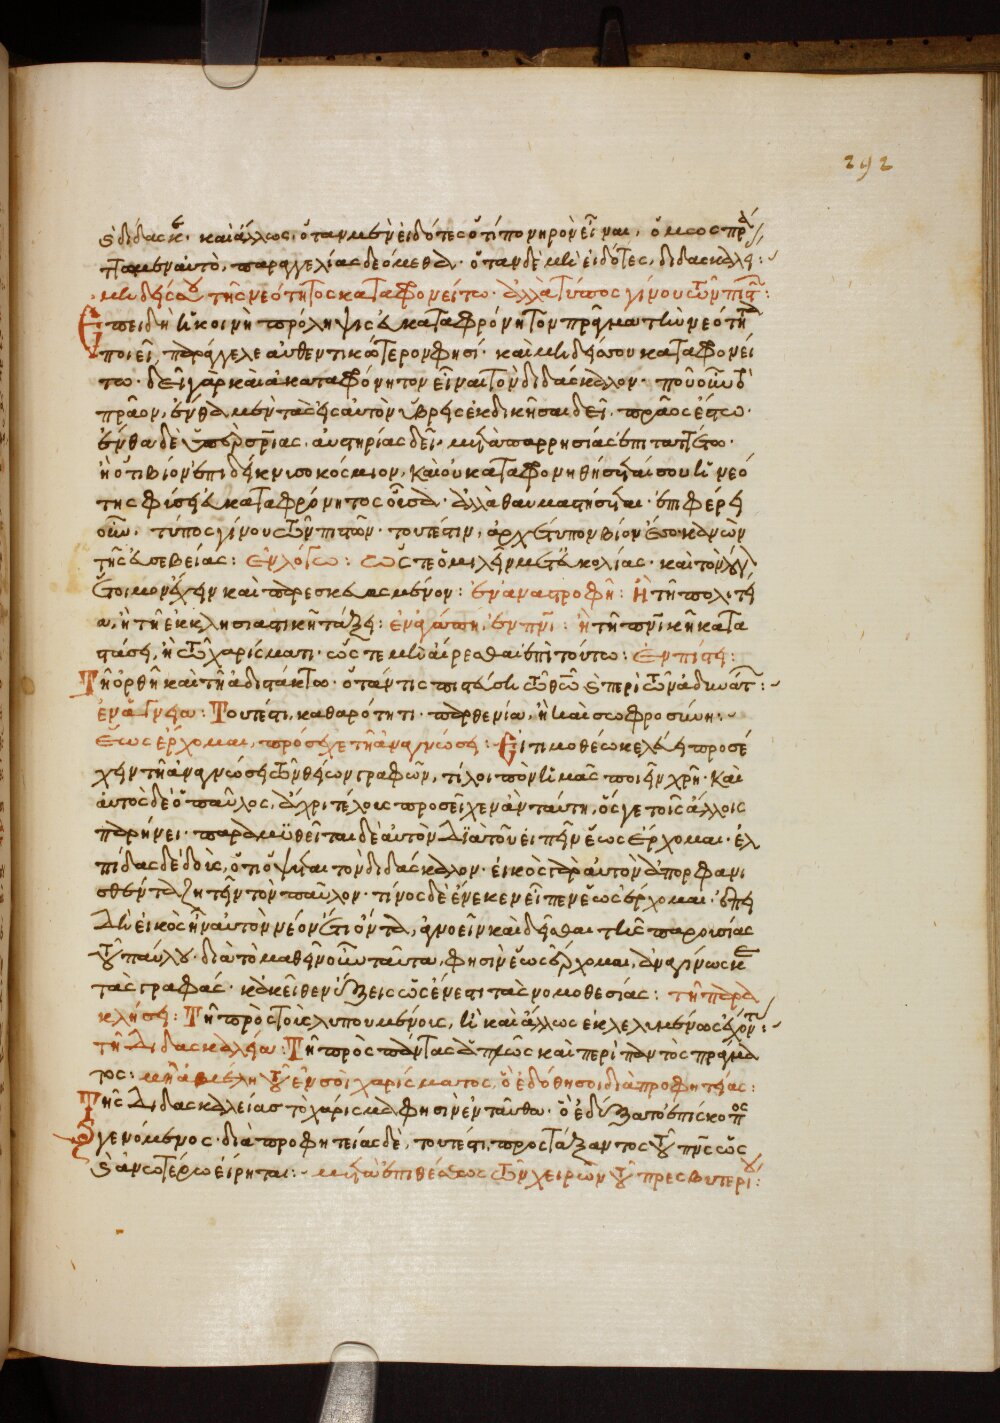 292
καὶ διδασκ. καὶ ἄλλως, ὅταν μὲν εἰδότες ὅτι πονηρὸν εἶναι, ὅμως πρά
ττωμεν αὐτὸ, παραγγελίας δεόμεθα. ὅταν δὲ μὴ εἰδότες, διδασκαλίας:
μηδείς σου τῆς νεότητος καταφρονείτω. ἀλλὰ τύπος γίνου τῶν πιστῶν:
Ἐπειδὴ ἡ κοινὴ πρόληψις εὐκαταφρόνητον πρᾶγμα τὴν νεότητα
ποιεῖ, παράγγελε αὐθεντικώτερον φησί. καὶ μηδείς σου καταφρονεί
τω. δεῖ γὰρ καὶ ἀκαταφρόνητον εἶναι τὸν διδάσκαλον. ποῦ οὖν δεῖ
πρᾶον, ἔνθα μὲν τὰς εἰς αὐτὸν ὕβρεις ἐκδικῆσαι δεῖ, πρᾶος ἔστω.
ἔνθα δὲ ὑπὲρ σωτηρίας, αὐστηρίας δεῖ. μετὰ παρρησίας ἐπιταττέτω.
ἢ ὅτι βίον ἐπιδείκνυσο κόσμιον, καὶ οὐ καταφρονηθήσεταί σου ἡ νεό
της φύσει εὐκαταφρόνητος οὖσα. ἀλλὰ θαυμαστήσεται. ἐπιφέρει
οὖν, τύπος γίνου τῶν πιστῶν. τουτέστιν, ἀρχέτυπον βίου ἔσο κανὼν
τῆς εὐσεβείας: ἐν λόγω: ὥστε ὁμιλεῖν μετ εὐκολίας. καὶ τὸν λόγον
ἕτοιμον ἔχειν καὶ παρεσκευασμένον: ἐν ἀναστροφῆ: ἢ τῆ πολιτεί
α, ἢ τῆ ἐκκλησιαστικῆ τάξει: ἐν ἀγάπη, ἐν πνι: ἢ τῆ πνικῆ κατα
στάσει, ἢ τῶ χαρίσματι. ὥστε μὴ αἴρεσθαι ἐπὶ τούτω: ἐν πίστει:
Τῆ ὀρθῆ καὶ τῆ ἀδιστάκτω. ὅταν τις πιστεύση τῶ θῶ καὶ περὶ τῶν ἀδυνάτων:
ἐν ἁγνεία: Τουτέστι, καθαρότητι. παρθενία, ἢ καὶ σωφροσύνη:
ἕως ἔρχομαι, πρόσεχε τῆ ἀναγνώσει: Εἰ τιμοθέω κελεύει προσέ
χειν τῆ ἀναγνώσει τῶν θείων γραφῶν, τί λοιπὸν ἡμᾶς ποιεῖν χρή. καὶ
αὐτὸς δὲ ὁ παῦλος, ἄχρι τέλους προσεῖχεν ἂν ταύτη, ὅς γε τοῖς ἄλλοις
παρήνει. παραμυθεῖται δὲ αὐτὸν διὰ τοῦ εἰπεῖν ἕως ἔρχομαι. ἐλ
πίδας δέδοις, ὅτι ὄψεται τὸν διδάσκαλον. εἰκὸς γὰρ αὐτὸν ἀπορφανι
σθέντα ζητεῖν τὸν παῦλον. τίνος δὲ ἕνεκεν εἶπεν ἕως ἔρχομαι. ἐπει
δὴ εἰκὸς ἦν αὐτὸν νέον ἔτι ὄντα, ἀγνοεῖν καὶ δεῖσθαι τῆς παρουσίας
τοῦ παύλου. διὰ τὸ μαθεῖν οὖν ταῦτα, φησὶν ἕως ἔρχομαι, ἀναγίνωσκε
τὰς γραφάς. κἀκεῖθεν ἕξεις ὡς ἔνεστι τὰς νομοθεσίας: τῆ παρα
κλήσει: Τῆ πρὸς τοὺς λυπουμένους, ἢ καὶ ἄλλως ἐκλελυμένως ἔχοντας:
τῆ διδασκαλία: Τῆ πρὸς πάντας ἁπλῶς καὶ περὶ παντὸς πράγμα
τος: μὴ ἀμέλει τοῦ ἐν σοὶ χαρίσματος, ὃ ἐδόθη σοι διὰ προφητείας:
Τῆς διδασκαλείας τὸ χάρισμα φησὶν ἐνταῦθα. ὃ ἐδέξατο ἐπίσκοπος
γενόμενος. διὰ προφητείας δὲ, τουτέστι, προστάξαντος τοῦ πνς ὡς
καὶ ἀνωτέρω εἴρηται: μετὰ ἐπιθέσεως τῶν χειρῶν τοῦ πρεσβυτερίου: